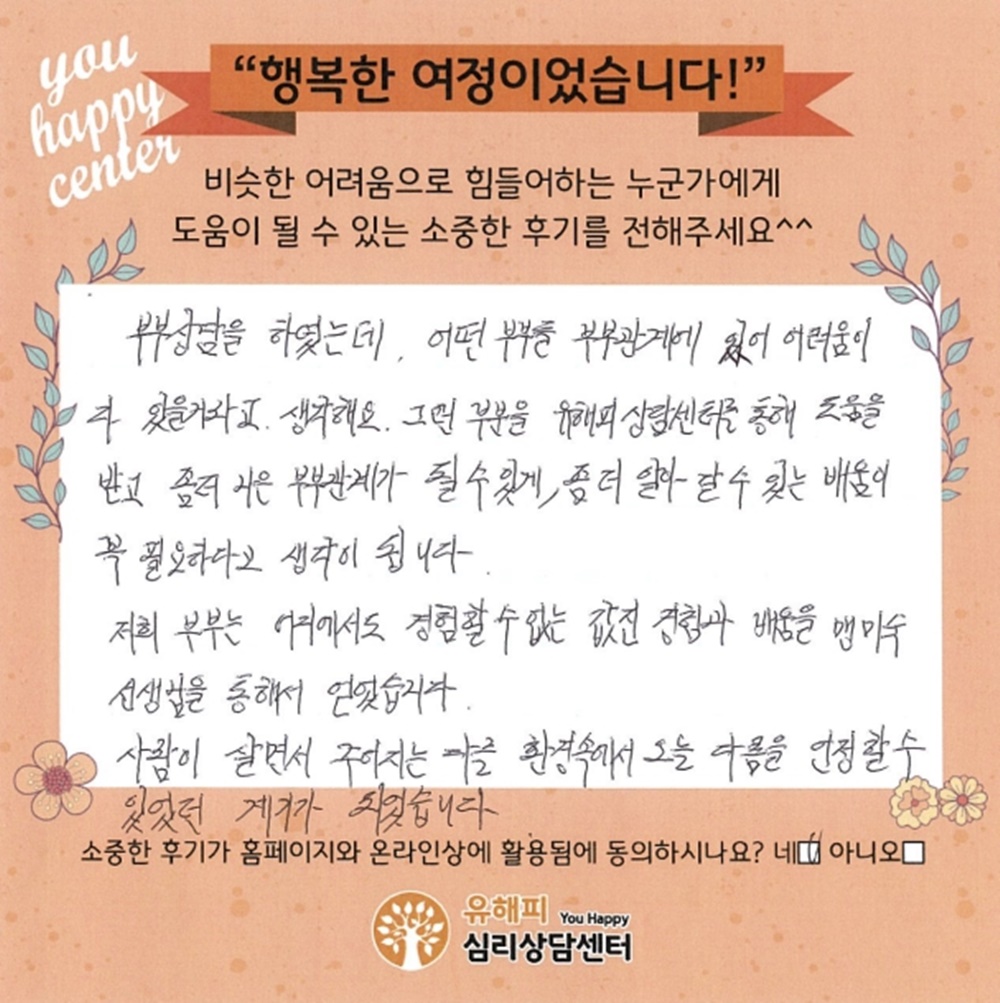 you
happy
center
“행복한 여정이었습니다!”
비슷한 어려움으로 힘들어하는 누군가에게
도움이 될 수 있는 소중한 후기를 전해주세요^^
부부상담을 하였는데, 어떤 부부를 부부관계에 있어 어려움이
다 있을거라고. 생각해요. 그런 부분을 유해피상담센터를 통해 도움을
받고 좀더 나은 부부관계가 될 수 있게, 좀 더 알아 갈 수 있는 배움이
꼭 필요하다고 생각이 됩니다.
저희 부부는 어디에서도 경험할 수 없는 값진 경험과 배움을 맹미숙
선생님을 통해서 얻었습니다.
사람이 살면서 주어지는 환경속에서 오는 다름을 인정할 수
있었던 계기가 되었습니다
소중한 후기가 홈페이지와 온라인상에 활용됨에 동의하시나요? 네☑ 아니오□
유해피 You Happy
심리상담센터